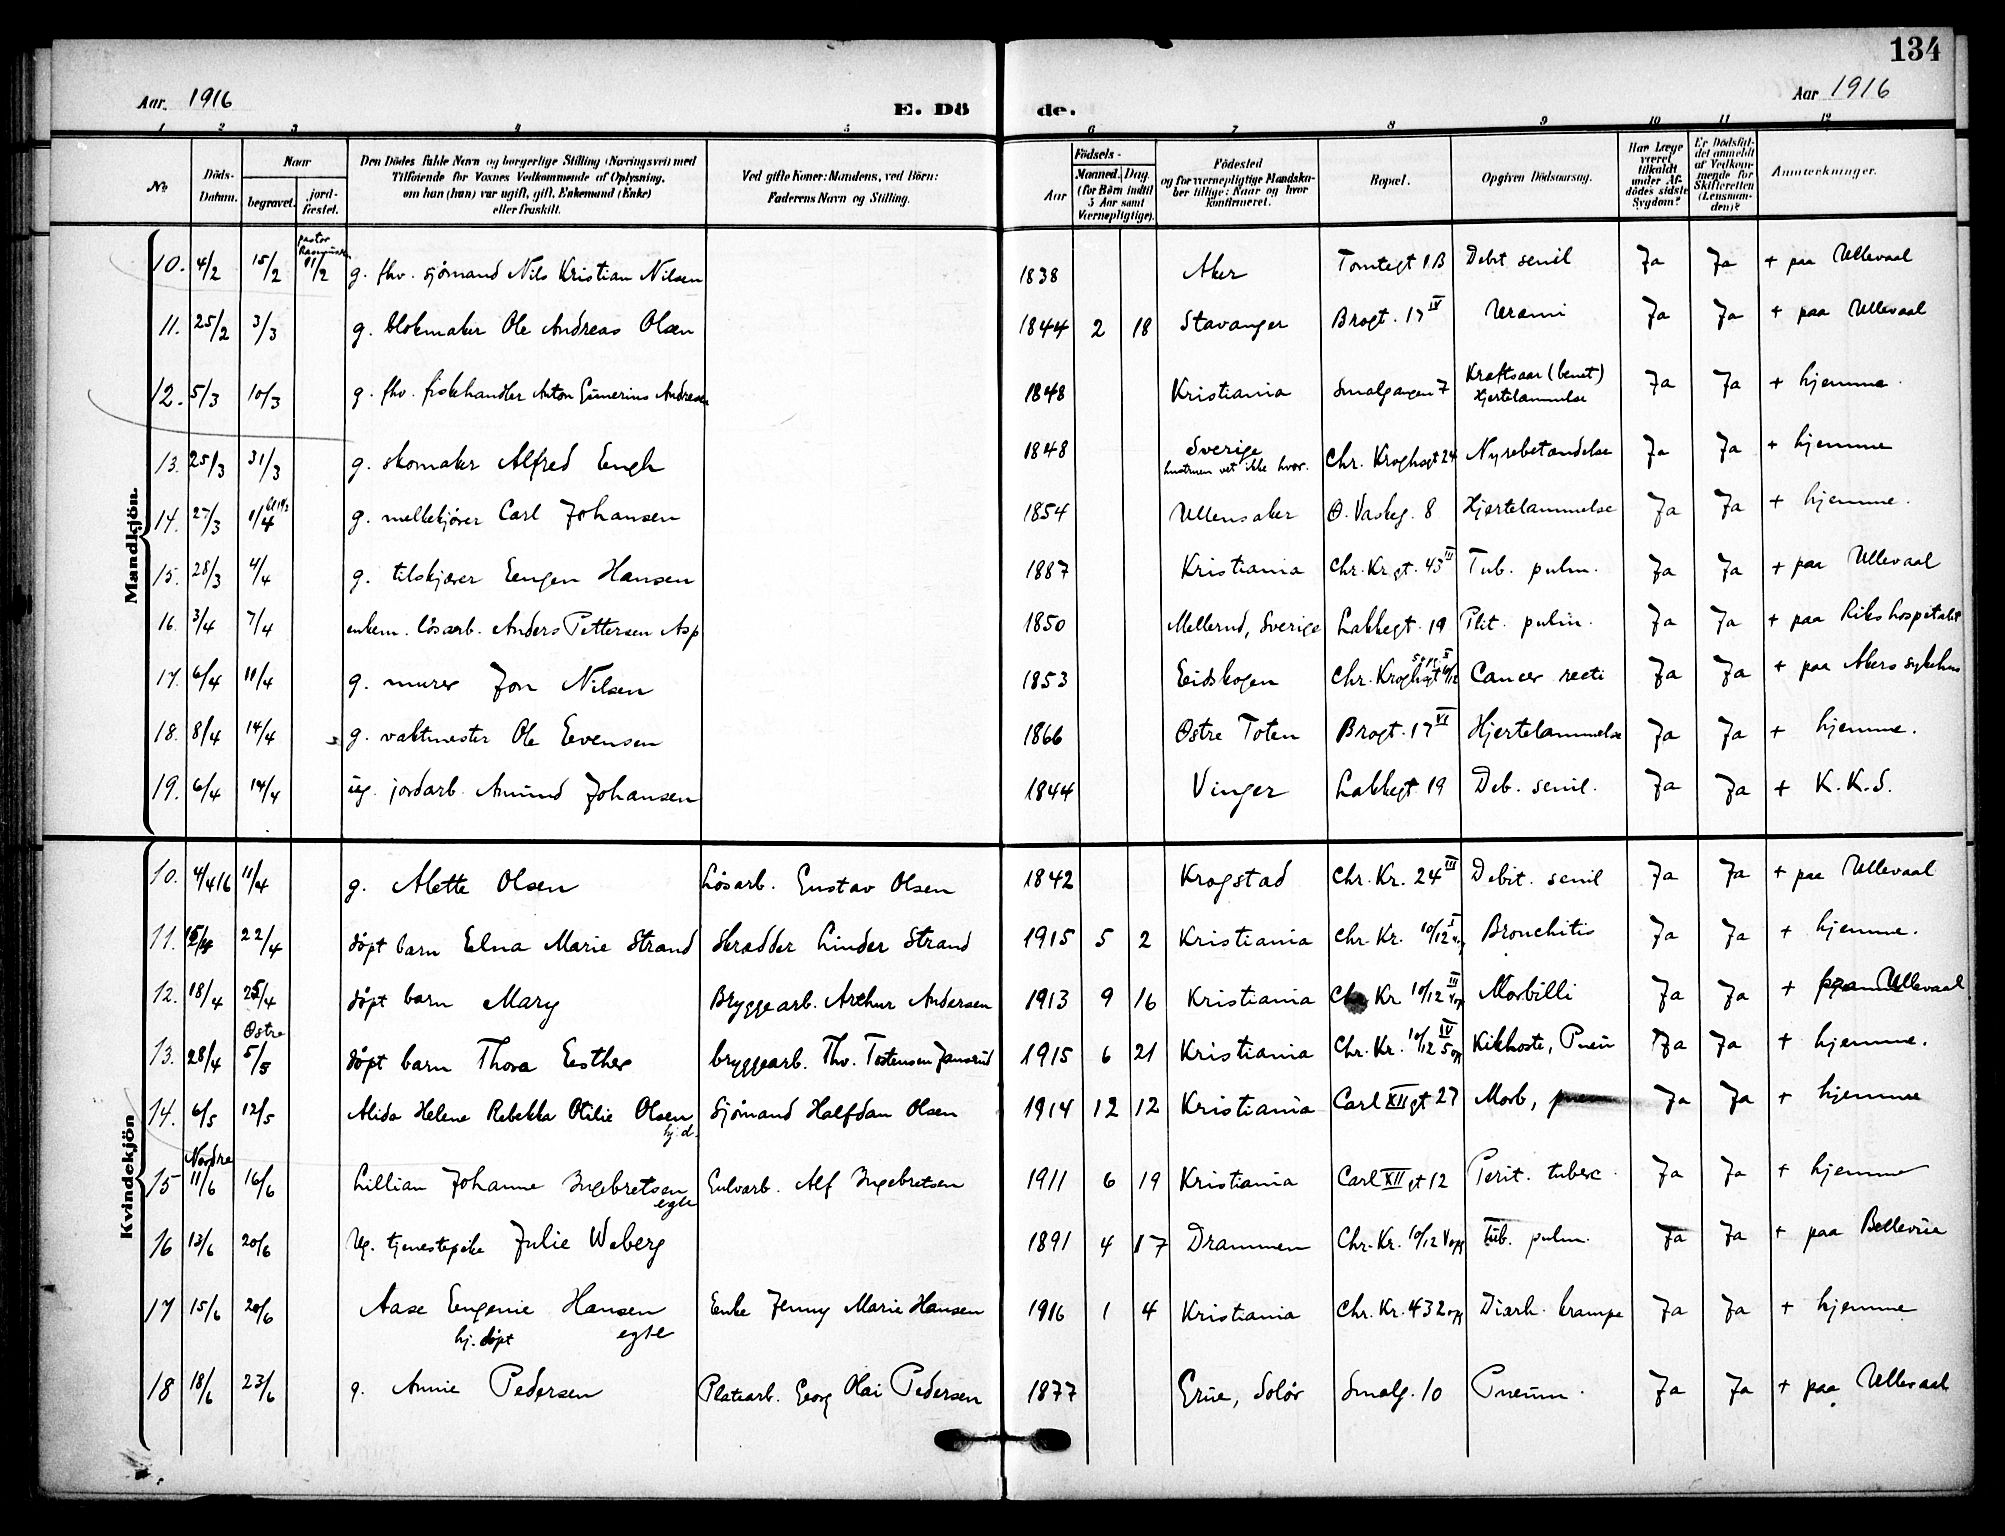 134
Aar. 1916 E. Dö
de. Aar 1916
1 2 3 4 5 6 7 8 9 10 11 12
No
Döds-Datum.
Naar
begravet.
jord-fæstet.
Den Dödes fulde Navn og borgerlige Stilling (Næringsvei) med
Tilföiende for Voxnes Vedkommende af Oplysning,
om han (hun) var ugift, gift, Enkemand (Enke)
eller fraskilt.
Ved gifte Koner: Mandens, ved Börn:
Faderens Navn og Stilling.
Födsels-
Aar
Maaned. Dag.
(for Börn indtil
5 Aar samt
Værnepligtige).
Födested
og for værnepligtige Mandska-
ber tillige: Naar og hvor
konfirmeret.
Bopæl.
Opgiven Dödsaarsag.
Har Læge
været
tilkaldt
under Af-
dödes sidste
Sygdom?
Er Dödsfal-
det anmeldt
af Vedkom-
mende for
Skifteretten
(Lensman-
den)?
Anmærkninger.
Mandkjön.
10. 4/2 15/2 pastor 11/2 g. fhv. sjömand Nils Kristian Nilsen 1838 Aker Tomtegt 1B Debt. senil Ja Ja + paa Ullevaal
11. 25/2 3/3 g. blokmaker Ole Andreas Olsen 1844 2 18 Stavanger Brogt. 17 IV Uremi Ja Ja + paa Ullevaal
12. 5/3 10/3 g. fhv. fiskehandler Anton Gunerius Andresen 1848 Kristiania Smalgangen 7 Kræftsaar (benet) Hjertelammelse Ja Ja + hjemme.
13. 25/3 31/3 g. skomaker Alfred Engh 1848 Sverige hustruen vet ikke hvor. Chr. Kroghsgt 24 Nyrebetændelse Ja Ja + hjemme
14. 27/3 1/4 g. melkekjører Carl Johansen 1854 Ullensaker Ø. Vaskeg. 8 Hjertelammelse Ja Ja + hjemme.
15. 28/3 4/4 g. tilskjærer Eugen Hansen 1887 Kristiania Chr. Kr.gt. 43 III Tub. pulm. Ja Ja + paa Ullevaal
16. 3/4 7/4 enkem. løsarb. Anders Pettersen Asp 1850 Mellerud, Sverige Lakkegt. 19 Ptit. pulm. Ja Ja + paa Rikshospitalet
17. 6/4 11/4 g. murer Jon Nilsen 1853 Eidskogen Chr. Kroghsgt 10/12 Cancer recti Ja Ja + paa Akers sykehus
18. 8/4 14/4 g. vaktmester Ole Evensen 1866 Østre Toten Brogt. 17 VI Hjertelammelse Ja Ja + hjemme.
19. 6/4 14/4 ug. jordarb. Amund Johansen 1844 Vinger Lakkegt 19 Deb. senil. Ja Ja + K.K.S.
Kvindekjön
10. 4/4 16 11/4 g. Alette Olsen Løsarb. Gustav Olsen 1842 Krogstad Chr. Kr. 24 III Debit. senil Ja Ja + paa Ullevaal
11. 22/4 døpt barn Elna Marie Strand Skrædder Linder Strand 1915 5 2 Kristiania Chr. Kr. 10/12 I Bronchitis Ja Ja + hjemme.
12. 18/4 25/4 døpt barn Mary Bryggearb. Arthur Andersen 1913 9 16 Kristiania Chr Kr. 10/12 III Morbilli Ja Ja + paa Ullevaal
13. 28/4 Østre 5/5 døpt barn Thora Esther bryggearb. Thv. Tostensen Jansrud 1915 6 21 Kristiania Chr. Kr. 10/12 IV 5 op Kikhoste, Pneu Ja Ja + hjemme.
14. 6/5 12/5 Alida Helene Rebekka Otilie Olsen hj.d. Sjömand Halfdan Olsen 1914 12 12 Kristiania Carl XII gt 27 Morb, Ja Ja + hjemme
15 Nordre 11/6 16/6 Lillian Johanne Ingebretsen egte Gulvarb. Alf Ingebretsen 1911 6 19 Kristiania Carl XII gt 12 Perit. tuberc. Ja Ja + hjemme
16 13/6 20/6 Ug. tjenestepike Julie Weberg 1891 4 17 Drammen Chr. Kr. 10/12 V opg Tub. pulm. Ja Ja + paa Bellevue
17 15/6 20/6 Aase Eugenie Hansen hj. døpt egte Enke Jenny Marie Hansen 1916 1 4 Kristiania Chr. Kr. 43 2 opg Diarh. krampe Ja Ja + hjemme
18 18/6 23/6 g. Annie Pedersen Platearb. Georg Olai Pedersen 1877 Grue, Solør Smalg. 10 Pneum. Ja Ja + paa Ullevaal